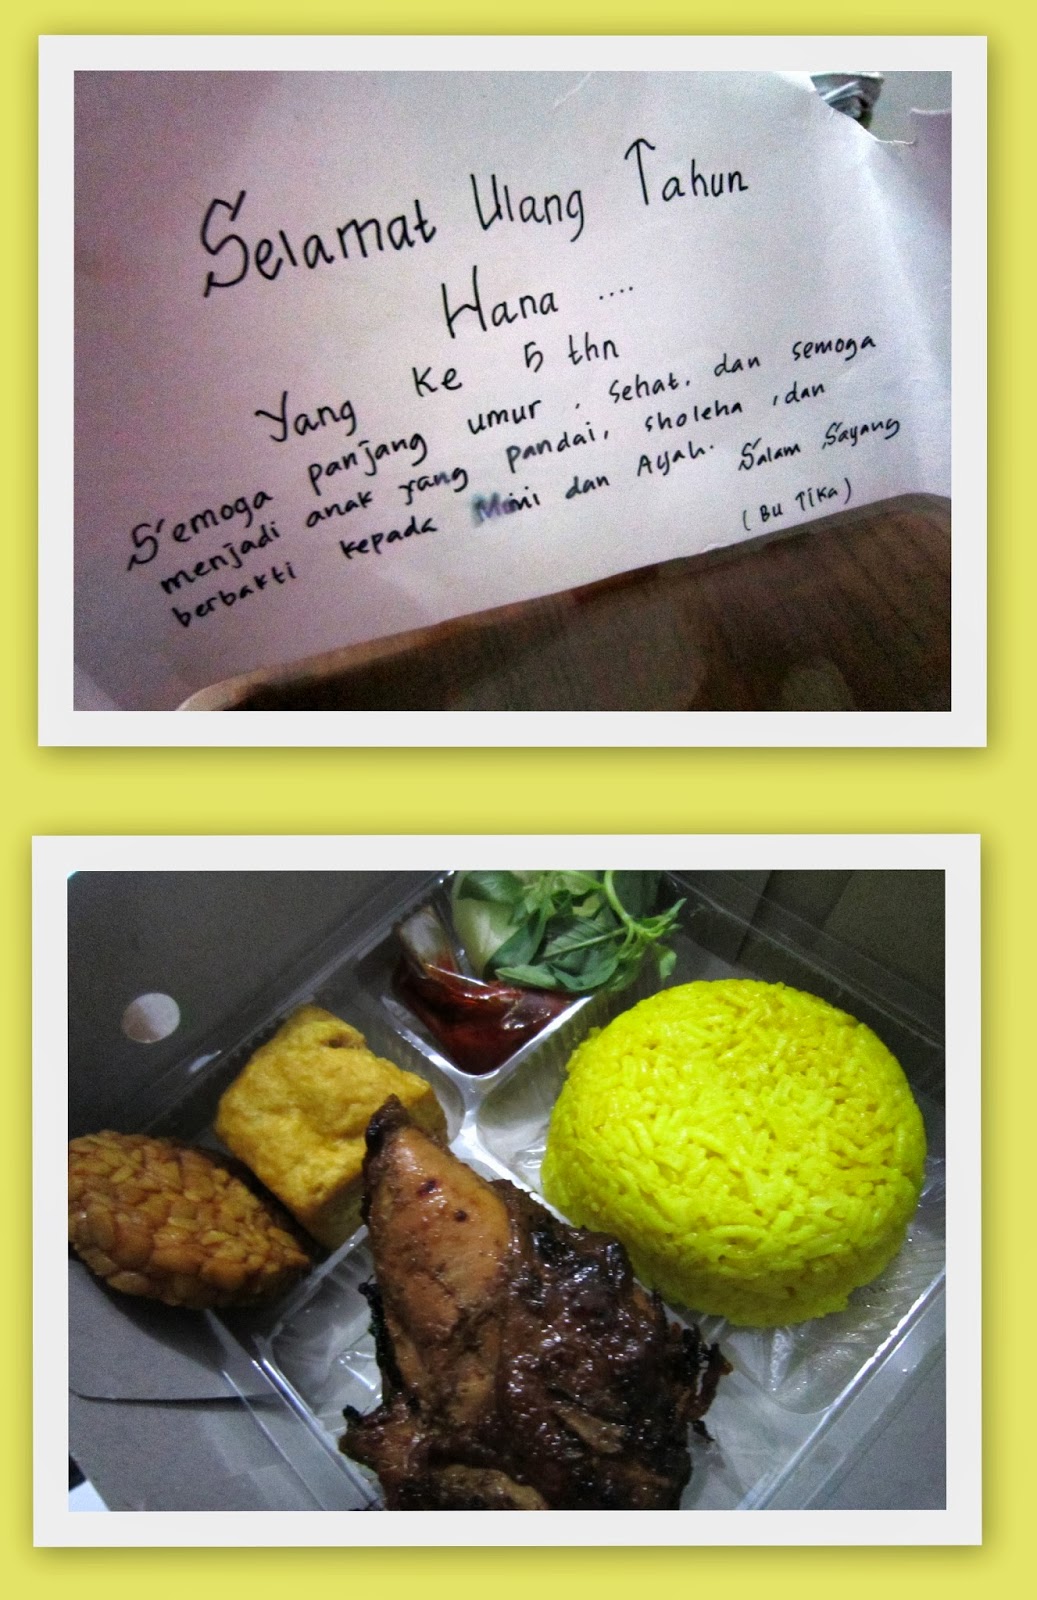 Selamat Ulang Tahun
Hana ....
Yang ke 5 thn
Semoga panjang umur, sehat, dan semoga
menjadi anak yang pandai, sholeha, dan
berbakti kepada Mimi dan Ayah. Salam Sayang
(Bu Tika)